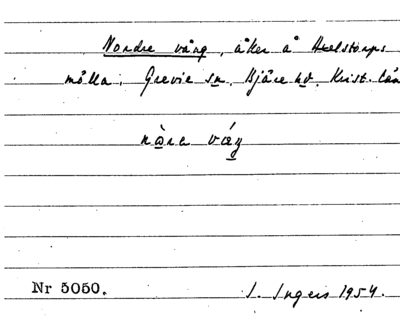 Nordre vång, åker å Axelstorps
mölla, Grevie sn. Bjäre hd. Krist. län
Nr 5050.
I. Ingers 1954.